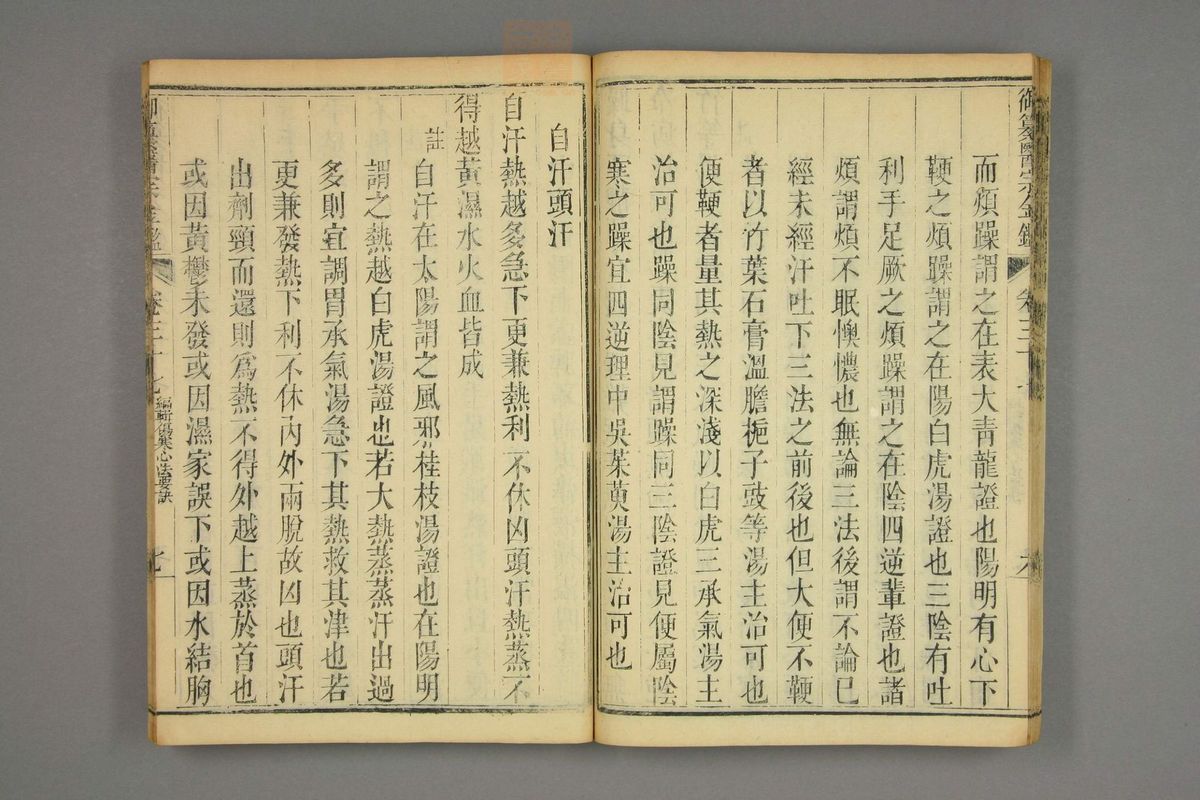 御纂醫宗金鑑 卷三十
而煩躁謂之在表大青龍證也陽明有心下
鞕之煩躁謂之在陽白虎湯證也三陰有吐
利手足厥之煩躁謂之在陰四逆輩證也諸
煩謂煩不眠懊憹也無論三法後謂不論已
經未經汗吐下三法之前後也但大便不鞕
者以竹葉石膏溫膽梔子豉等湯主治可也
便鞕者量其熱之深淺以白虎三承氣湯主
治可也躁同陰見謂躁同三陰證見便屬陰
寒之躁宜四逆理中吳茱萸湯主治可也
自汗頭汗
自汗熱越多急下更兼熱利不休凶頭汗熱蒸不
得越黃濕水火血皆成
註 自汗在太陽謂之風邪桂枝湯證也在陽明
謂之熱越白虎湯證也若大熱蒸蒸汗出過
多則宜調胃承氣湯急下其熱救其津也若
更兼發熱下利不休內外兩脫故凶也頭汗
出劑頸而還則為熱不得外越上蒸於首也
或因黃鬱未發或因濕家誤下或因水結胸
卷三十 編輯傷寒心法要訣 七